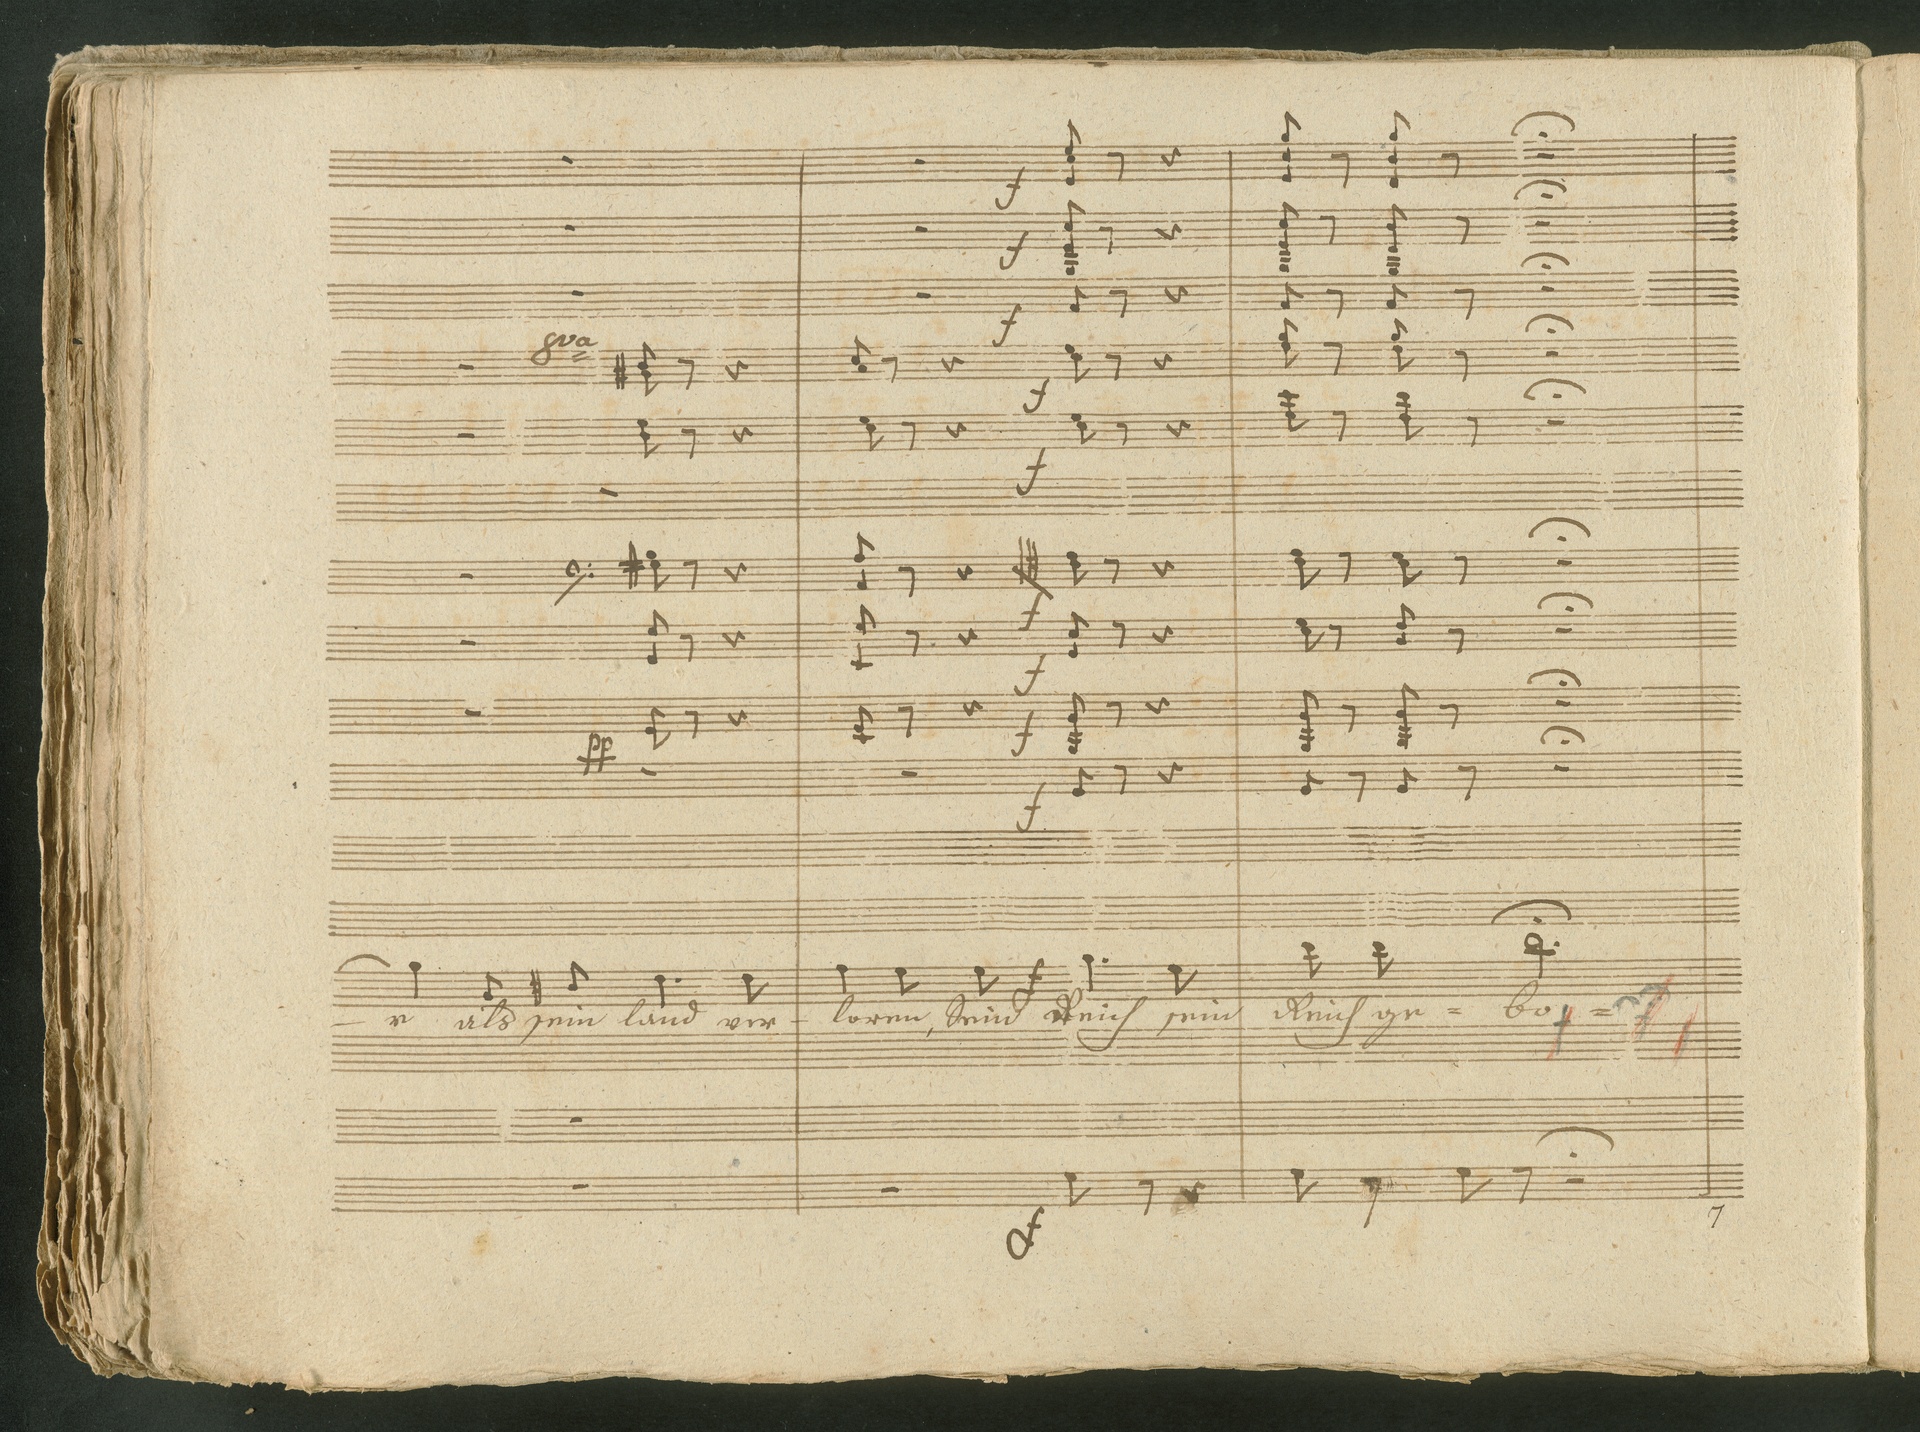 f
f
f
8va
f
f
f
f
pp
f
f
f
– r als sein land ver – loren, Sein Reich sein Reich ge = bo =
f
7